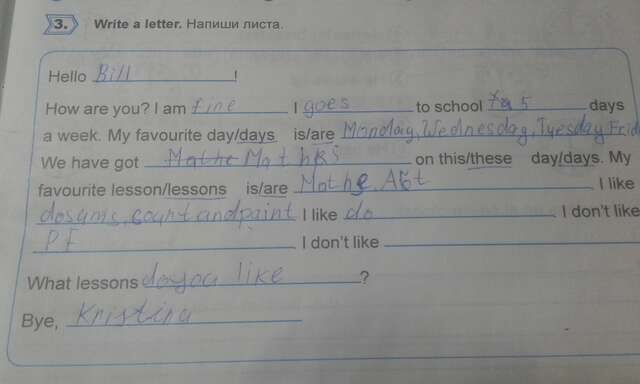 3. Write a letter. Напиши листа.
Hello Bill !
How are you? I am fine I goes to school 5 days
a week. My favourite day/days is/are Monday, Wednesday, Tyesday Frid
We have got on this/these day/days. My
favourite lesson/lessons is/are Mathe, Art I like
I like do I don't like
I don't like
What lessons do you like ?
Bye, Kristina